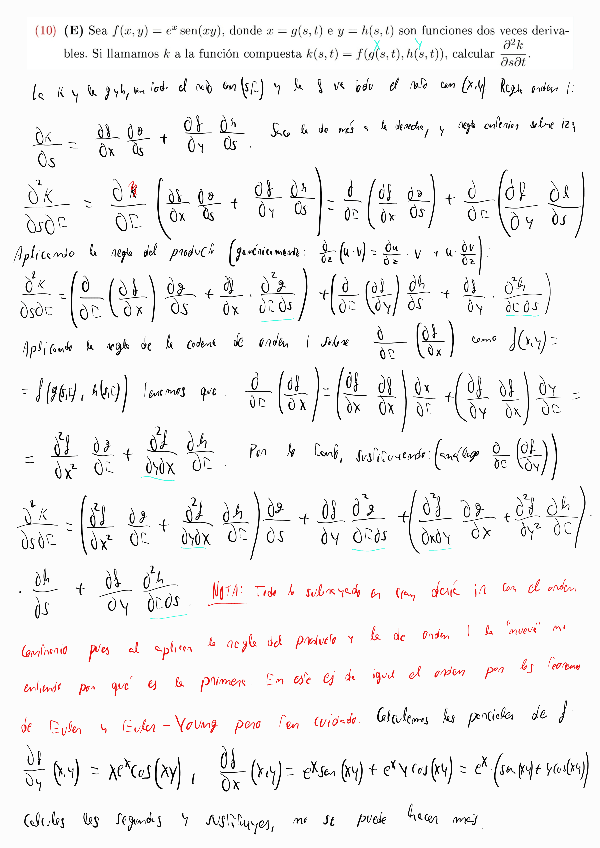 (10) (E) Sea f(x, y) = eˣ sen(xy), donde x = g(s, t) e y = h(s, t) son funciones dos veces deriva-
bles. Si llamamos k a la función compuesta k(s, t) = f(g(s, t), h(s, t)), calcular ∂²k/∂s∂t.
x y
La k y la g y h, van todo el rato con (s,t) y la f va todo el rato con (x,y) Regla orden 1:
∂k/∂s = ∂f/∂x ∂g/∂s + ∂f/∂y ∂h/∂s. Saco la de más a la derecha, y regla anterior sobre
∂²k/∂s∂t = ∂/∂t (∂f/∂x ∂g/∂s + ∂f/∂y ∂h/∂s) = ∂/∂t (∂f/∂x ∂g/∂s) + ∂/∂t (∂f/∂y ∂h/∂s)
Aplicando la regla del producto (genéricamente: ∂/∂z (u·v) = ∂u/∂z · v + u · ∂v/∂z):
∂²k/∂s∂t = (∂/∂t (∂f/∂x) ∂g/∂s + ∂f/∂x · ∂²g/∂t∂s) + (∂/∂t (∂f/∂y) ∂h/∂s + ∂f/∂y · ∂²h/∂t∂s)
Aplicando la regla de la cadena de orden 1 sobre ∂/∂t (∂f/∂x) como f(x,y) =
= f(g(s,t), h(s,t)) tenemos que ∂/∂t (∂f/∂x) = (∂f/∂x ∂f/∂x) ∂x/∂t + (∂f/∂y ∂f/∂x) ∂y/∂t =
= ∂²f/∂x² ∂g/∂t + ∂²f/∂y∂x ∂h/∂t. Por lo tanto, sustituyendo: (análogo ∂/∂t (∂f/∂y))
∂²k/∂s∂t = (∂²f/∂x² ∂g/∂t + ∂²f/∂y∂x ∂h/∂t) ∂g/∂s + ∂f/∂y ∂²g/∂t∂s + (∂²f/∂x∂y ∂g/∂x + ∂²f/∂y² ∂h/∂t) ·
· ∂h/∂s + ∂f/∂y ∂²h/∂t∂s. NOTA: Todo lo subrayado en cian, debería ir con el orden
contrario pues al aplicar la regla del producto y la de orden 1 la "nueva" no
entiendo por qué es la primera. En este ej da igual el orden por los Teorema
de Euler y Euler-Young pero ten cuidado. Calculemos las parciales de f
∂f/∂y (x,y) = xeˣcos(xy), ∂f/∂x (x,y) = eˣsen(xy) + eˣycos(xy) = eˣ(sen(xy) + ycos(xy))
Calculas las segundas y sustituyes, no se puede hacer más.